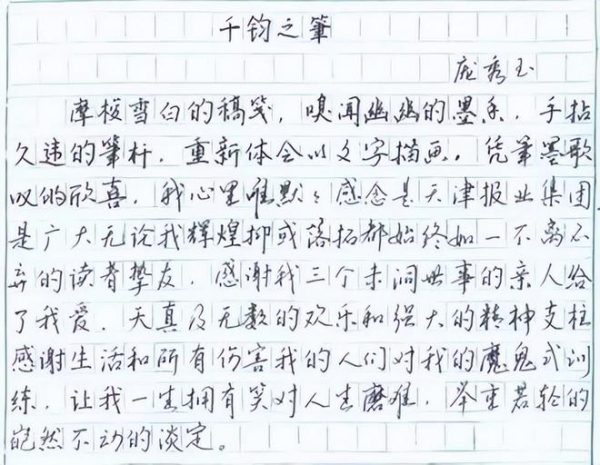 千钧之筆
庞秀玉
摩梭雪白的稿笺，嗅闻幽幽的墨香，手拈
久违的筆杆，重新体会以文字描画，凭筆墨歌
叹的欣喜，我心里唯默々感念是天津报业集团
是广大无论我辉煌抑或落拓都始终如一不离不
弃的读者挚友，感谢我三个未洞世事的亲人给
了我爱，天真及无数的欢乐和强大的精神支柱
感谢生活和所有伤害我的人们对我的魔鬼式训
练，让我一生拥有笑对人生磨难，举重若轻的
岿然不动的淡定。